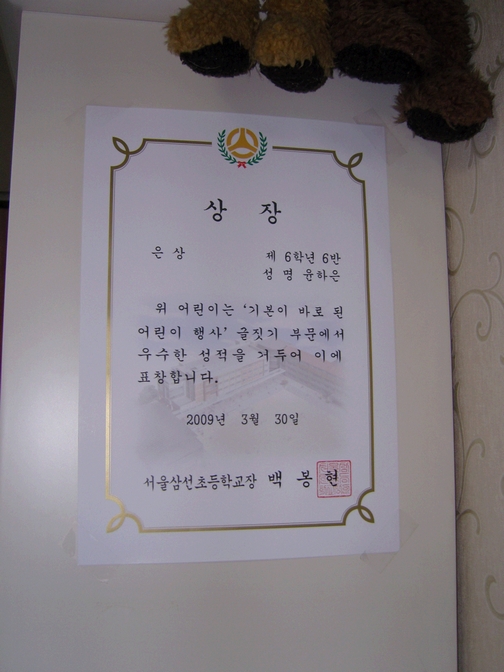 상 장
은 상
제 6학년 6반
성 명 윤하은
위 어린이는 '기본이 바로 된
어린이 행사' 글짓기 부문에서
우수한 성적을 거두어 이에
표창합니다.
2009년 3월 30일
서울삼선초등학교장 백 봉 현